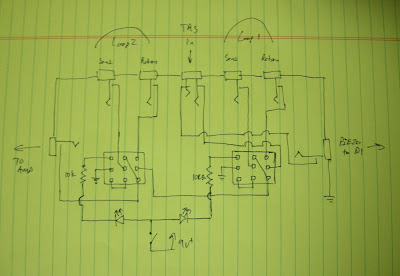 TRS
in
Loop 2
Loop 1
Send
Return
Send
Return
TO
AMP
PIEZO
to DI
10k
100k
9V